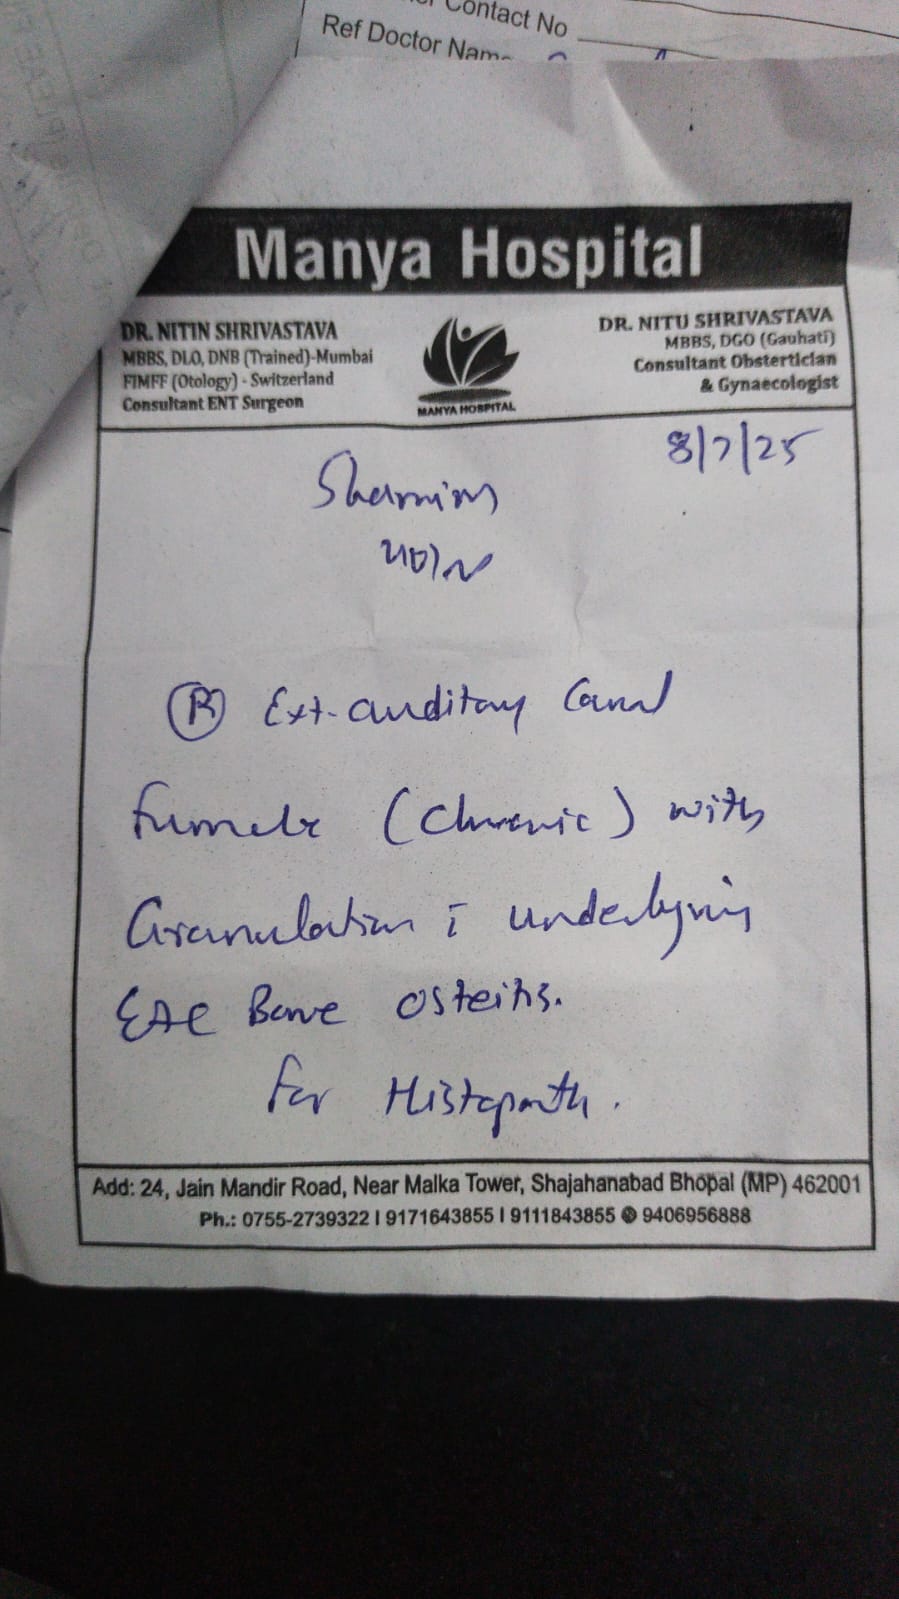 Contact No
Ref Doctor Name
Manya Hospital
DR. NITIN SHRIVASTAVA
MBBS, DLO, DNB (Trained)-Mumbai
FIMFF (Otology) - Switzerland
Consultant ENT Surgeon
MANYA HOSPITAL
DR. NITU SHRIVASTAVA
MBBS, DGO (Gauhati)
Consultant Obstertician
& Gynaecologist
8/7/25
(R) Ext. auditory Canal
(Chronic) with
Granulation ī underlying
EAC Bone osteitis.
for Histopath.
Add: 24, Jain Mandir Road, Near Malka Tower, Shajahanabad Bhopal (MP) 462001
Ph.: 0755-2739322 I 9171643855 I 9111843855 9406956888